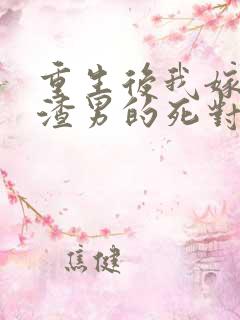 重生後我嫁
渣男的死對
焦健